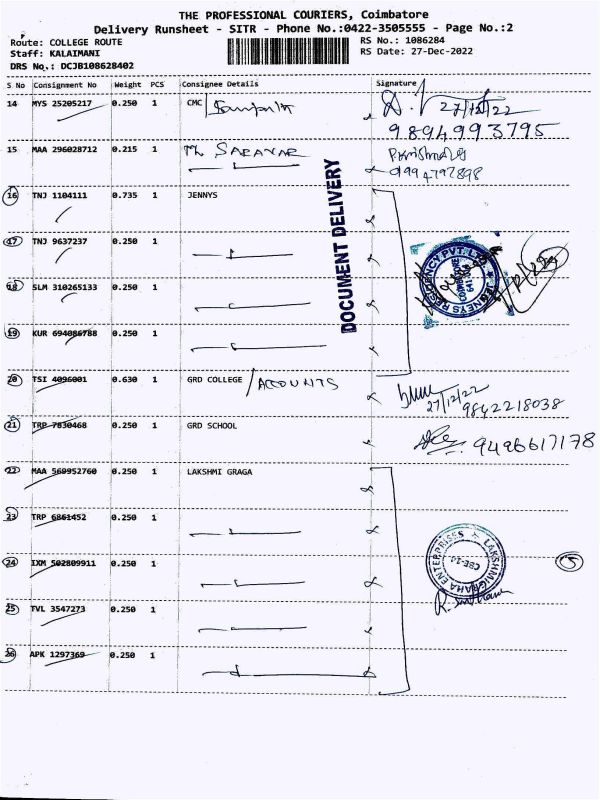 THE PROFESSIONAL COURIERS, Coimbatore
Delivery Runsheet - SITR - Phone No.:0422-3505555 - Page No.:2
Route: COLLEGE ROUTE
Staff: KALAIMANI
DRS No.: DCJB108628402
RS No.: 1086284
RS Date: 27-Dec-2022
S No Consignment No Weight PCS Consignee Details Signature
14 MYS 25205217 0.250 1 CMC 27/12/22
9894993795
15 MAA 296028712 0.215 1
9994797898
16 TNJ 1104111 0.735 1 JENNYS
17 TNJ 9637237 0.250 1
18 SLM 310265133 0.250 1
19 KUR 694086788 0.250 1
DOCUMENT DELIVERY
JENNEYS RESIDENCY PVT. LTD.
20 TSI 4096001 0.630 1 GRD COLLEGE / ACCOUNTS
27/12/22
9842218038
21 TRP 7830468 0.250 1 GRD SCHOOL 9496617178
22 MAA 569952760 0.250 1 LAKSHMI GRAGA
23 TRP 6861452 0.250 1
24 IXM 502809911 0.250 1 5
LAKSHMIGRAHA ENTERPRISES
CBE-14
25 TVL 3547273 0.250 1
26 APK 1297369 0.250 1